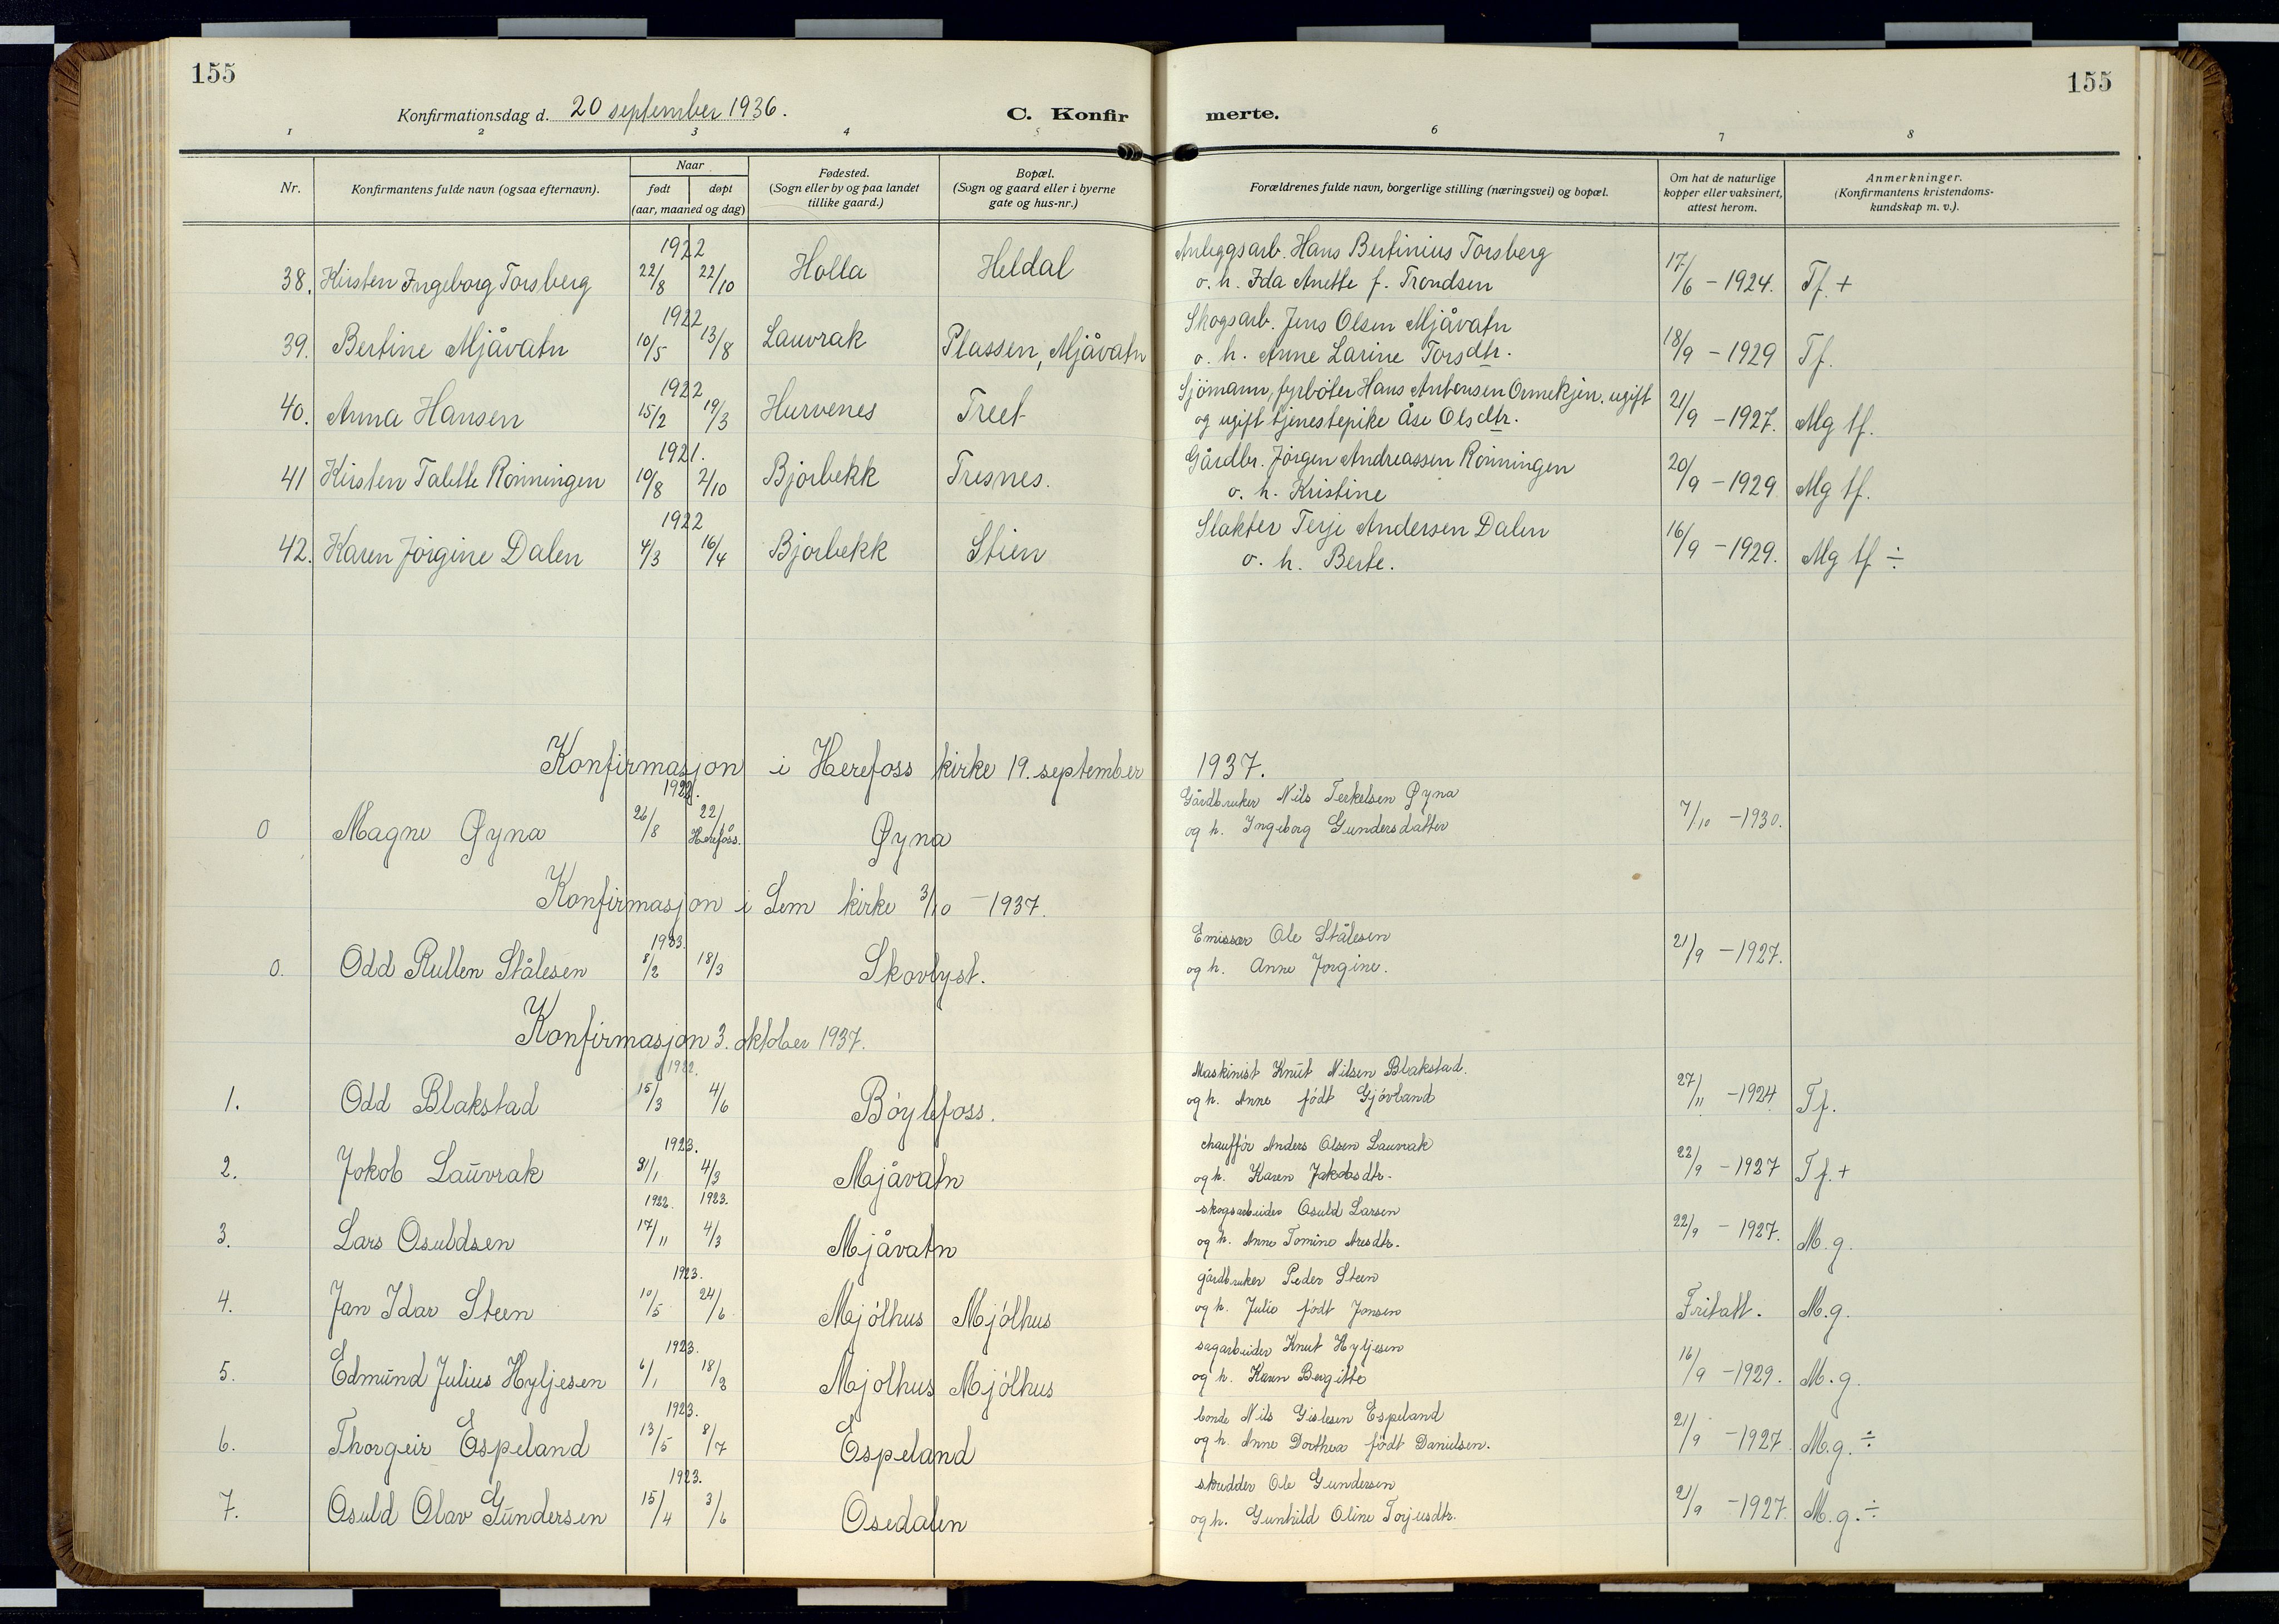 155
155
Konfirmationsdag d. 20 september 1936.
C. Konfir merte.
1 2 3 4 5 6 7 8
Nr.
Konfirmantens fulde navn (ogsaa efternavn).
Naar
født døpt
(aar, maaned og dag)
Fødested.
(Sogn eller by og paa landet
tillike gaard.)
Bopæl.
(Sogn og gaard eller i byerne
gate og hus-nr.)
Forældrenes fulde navn, borgerlige stilling (næringsvei) og bopæl.
Om hat de naturlige
kopper eller vaksinert,
attest herom.
Anmerkninger.
(Konfirmantens kristendoms-
kundskap m. v.).
1922 Anleggsarb. Hans Bertinius Torsberg
38. Kirsten Ingeborg Torsberg 22/8 22/10 Holla Heldal o. h. Ida Anette f. Trondsen 17/6 - 1924. Tf. +
1922 Skogsarb. Jens Olsen Mjåvatn
39. Bertine Mjåvatn 10/5 13/8 Lauvrak Plassen, Mjåvatn o. h. Anne Larine Torsdtr. 18/9 - 1929 Tf.
1922 Sjömann, fyrböter Hans Antonsen Ormekjen. ugift
40. Anna Hansen 15/2 19/3 Hurvenes Treet og ugift tjenestepike Åse Olsdtr. 21/9 - 1927. Mg tf.
1921. Gårdbr. Jörgen Andreassen Rönningen
41 Kirsten Talette Rönningen 10/8 2/10 Bjorbekk Tresnes. o. h. Kristine 20/9 - 1929 Mg tf.
1922 Slakter Terje Andersen Dalen
42. Karen Jörgine Dalen 4/3 16/4 Bjorbekk Stien o. h. Berte. 16/9 - 1929. Mg tf ÷
Konfirmasjon i Herefoss kirke 19. september 1937.
1922. Gårdbruker Nils Terkelsen Øyna
0 Magne Øyna 26/8 22/ Herefoss. Øyna og h. Ingeborg Gundersdatter 7/10 - 1930.
Konfirmasjon i Lem kirke 3/10 - 1937.
1923. Emissær Ole Stålesen
0. Odd Rullen Stålesen 8/2 18/3 Skovlyst. og h. Anne Jorgine. 21/9 - 1927.
Konfirmasjon 3. oktober 1937.
1922. Maskinist Knut Nilsen Blakstad.
1. Odd Blakstad 15/3 4/6 Böylefoss. og h. Anne födt Gjövland 27/11 - 1924 Tf.
1923. chaufför Anders Olsen Lauvrak
2. Jakob Lauvrak 31/1 4/3 Mjåvatn og h. Karen Jakobsdtr. 22/9 - 1927 Tf. +
1922. 1923. skogsarbeider Osuld Larsen
3. Lars Osuldsen 17/11 4/3 Mjåvatn og h. Anne Tomine Aresdtr. 22/9 - 1927. M.g.
1923. gårdbruker Peder Steen
4. Jan Idar Steen 10/5 24/6 Mjölhus Mjölhus og h. Julie födt Jonsen Fritatt. M.g.
1923. sagarbeider Knut Hyljesen
5. Edmund Julius Hyljesen 6/1 18/3 Mjolhus Mjölhus og h. Karen Bergitte 16/9 - 1929. M.g.
1923. bonde Nils Gislesen Espeland
6. Thorgeir Espeland 13/5 8/7 Espeland og h. Anne Dorthea födt Danielsen. 21/9 - 1927 M.g. ÷
1923. skredder Ole Gundersen
7. Osuld Olav Gundersen 15/4 3/6 Osedalen og h. Gunhild Oline Torjusdtr. 21/9 - 1927. M.g. ÷